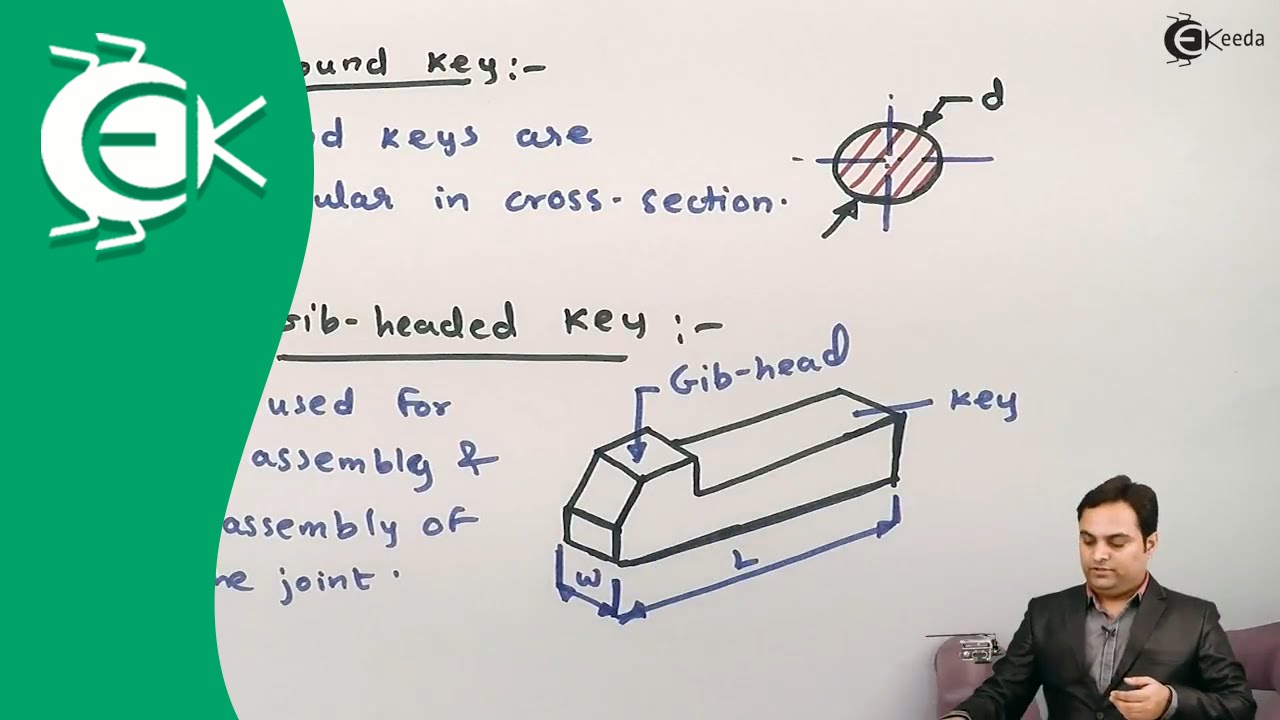 ound key:-
d keys are
ular in cross-section.
d
ib-headed key :-
used for
assembly &
assembly of
e joint.
Gib-head
key
W
L
EK
EKeeda